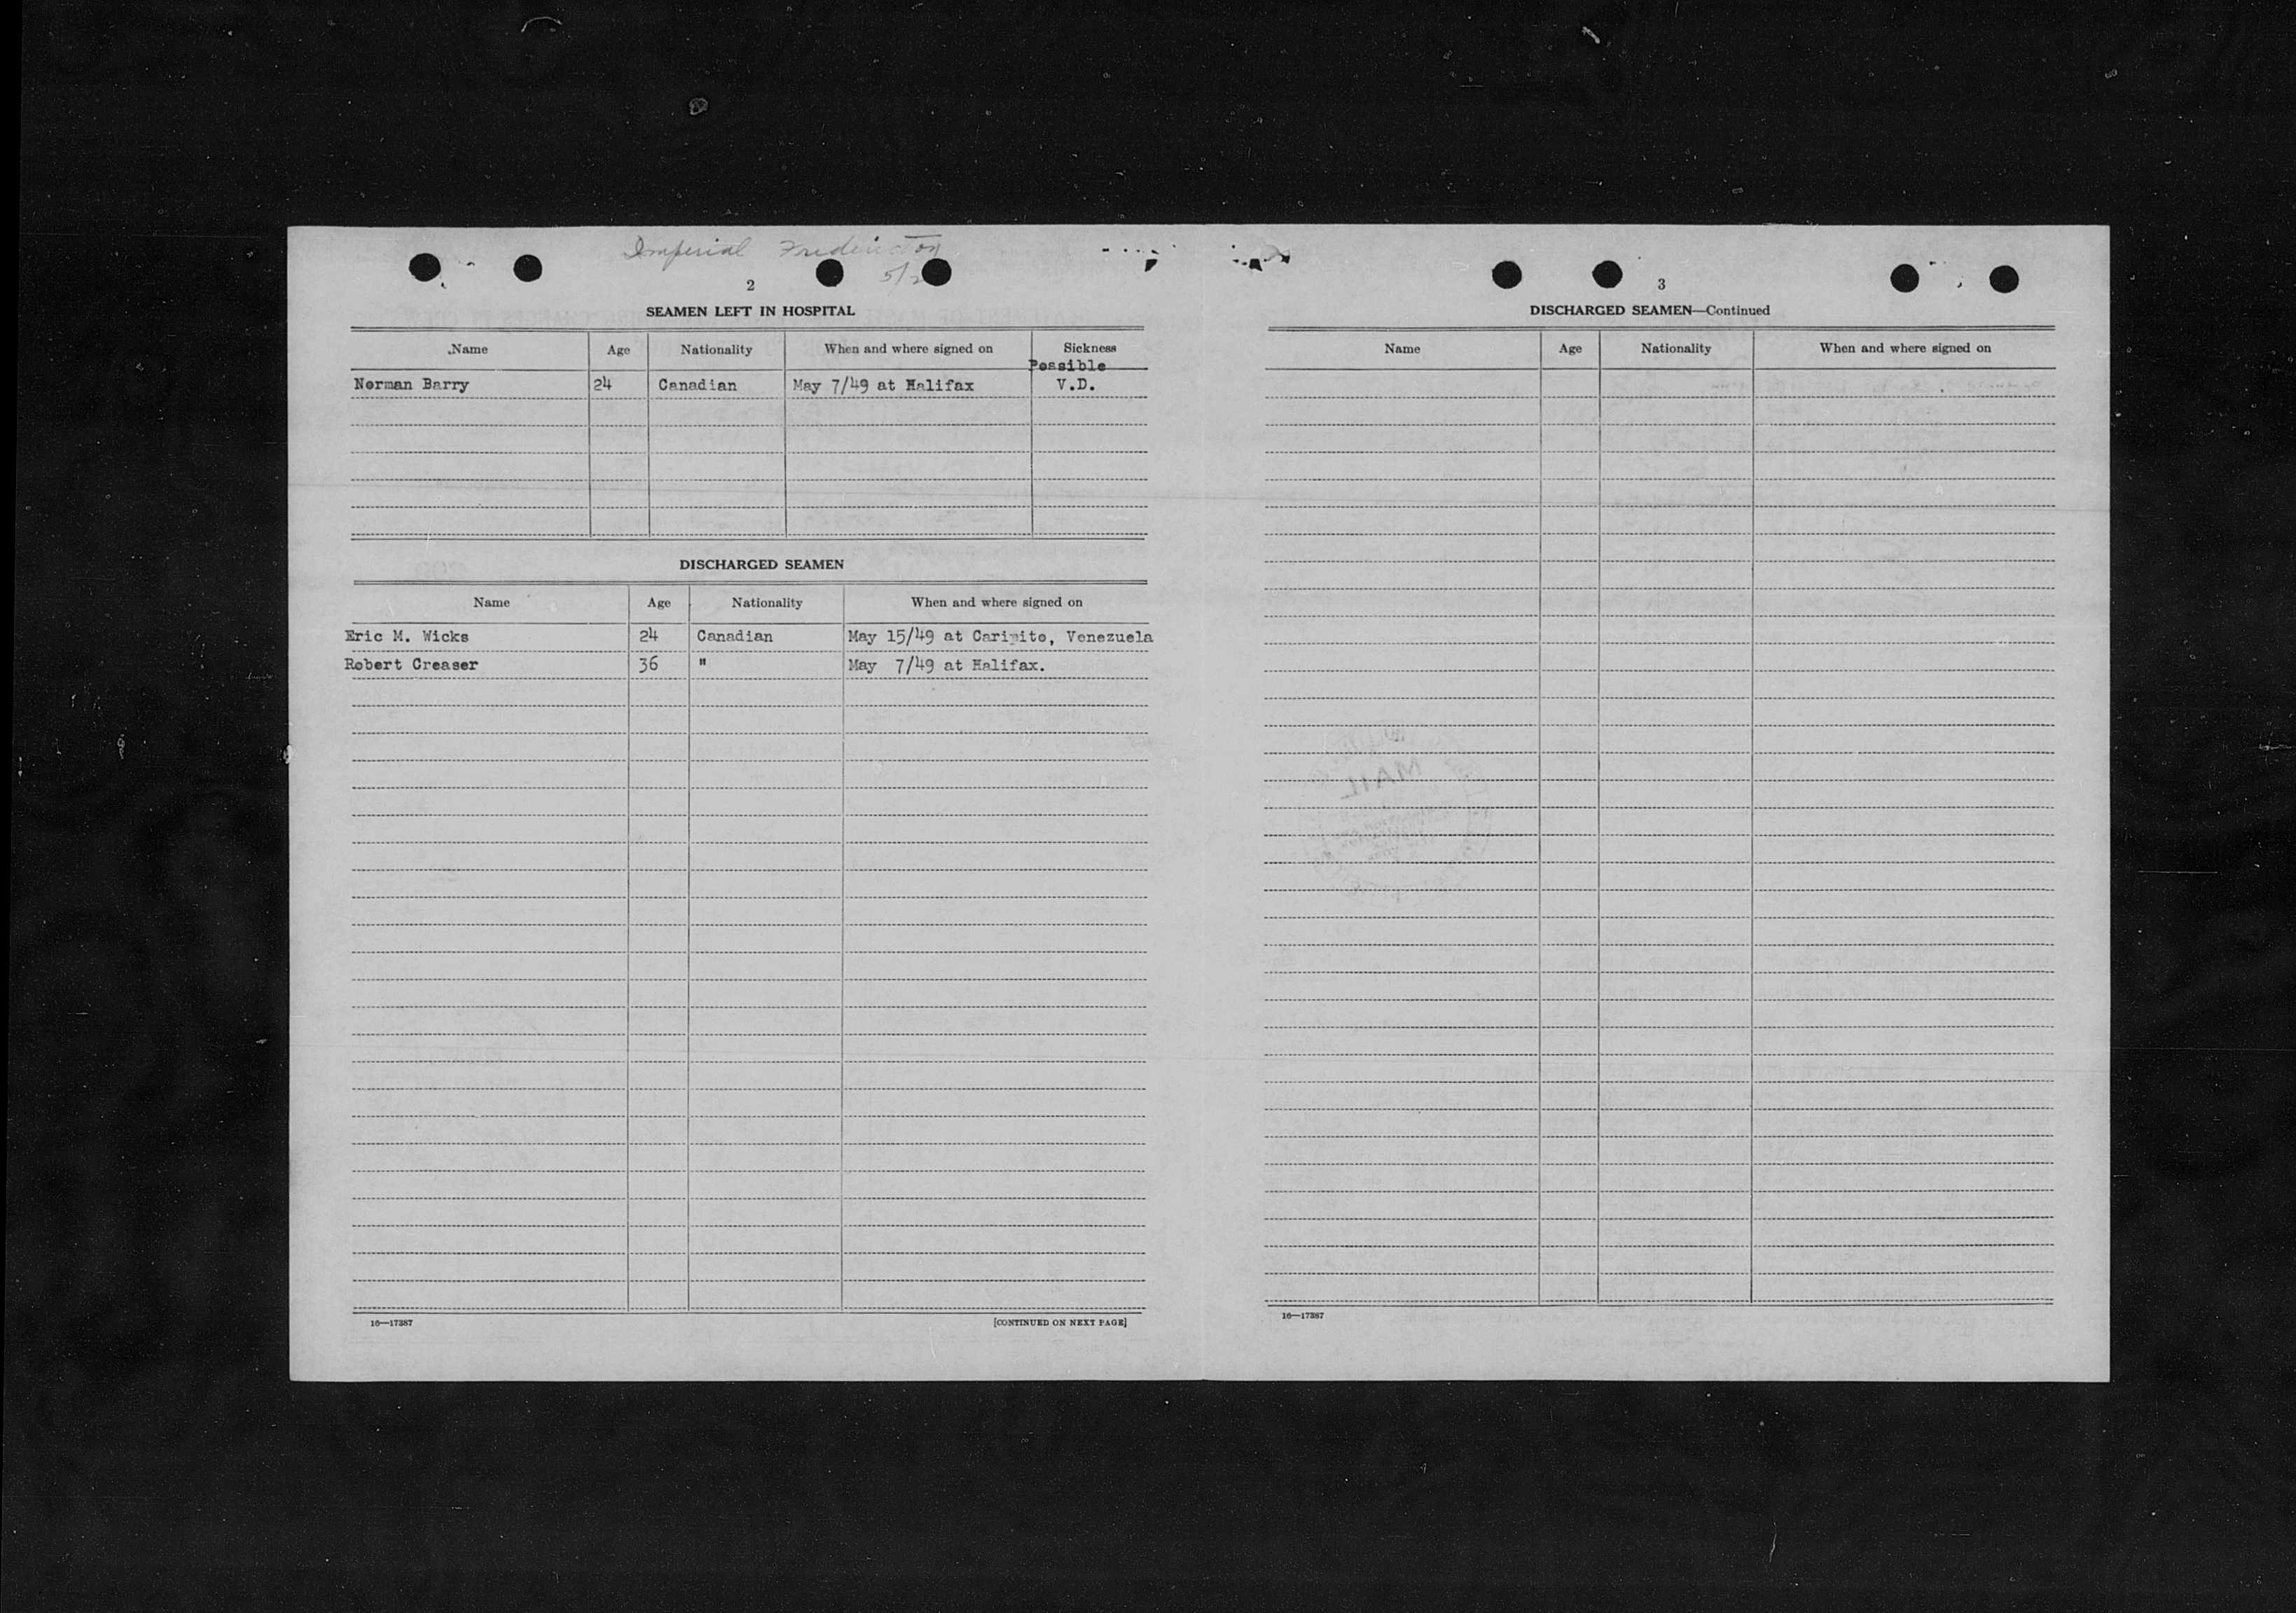 Imperial Fredericton
5/2
2
SEAMEN LEFT IN HOSPITAL
Name Age Nationality When and where signed on Sickness
Possible
Norman Barry 24 Canadian May 7/49 at Halifax V.D.
DISCHARGED SEAMEN
Name Age Nationality When and where signed on
Eric M. Wicks 24 Canadian May 15/49 at Caripito, Venezuela
Robert Creaser 36 " May 7/49 at Halifax.
16—17387 [CONTINUED ON NEXT PAGE]
3
DISCHARGED SEAMEN—Continued
Name Age Nationality When and where signed on
MAIL
16—17387